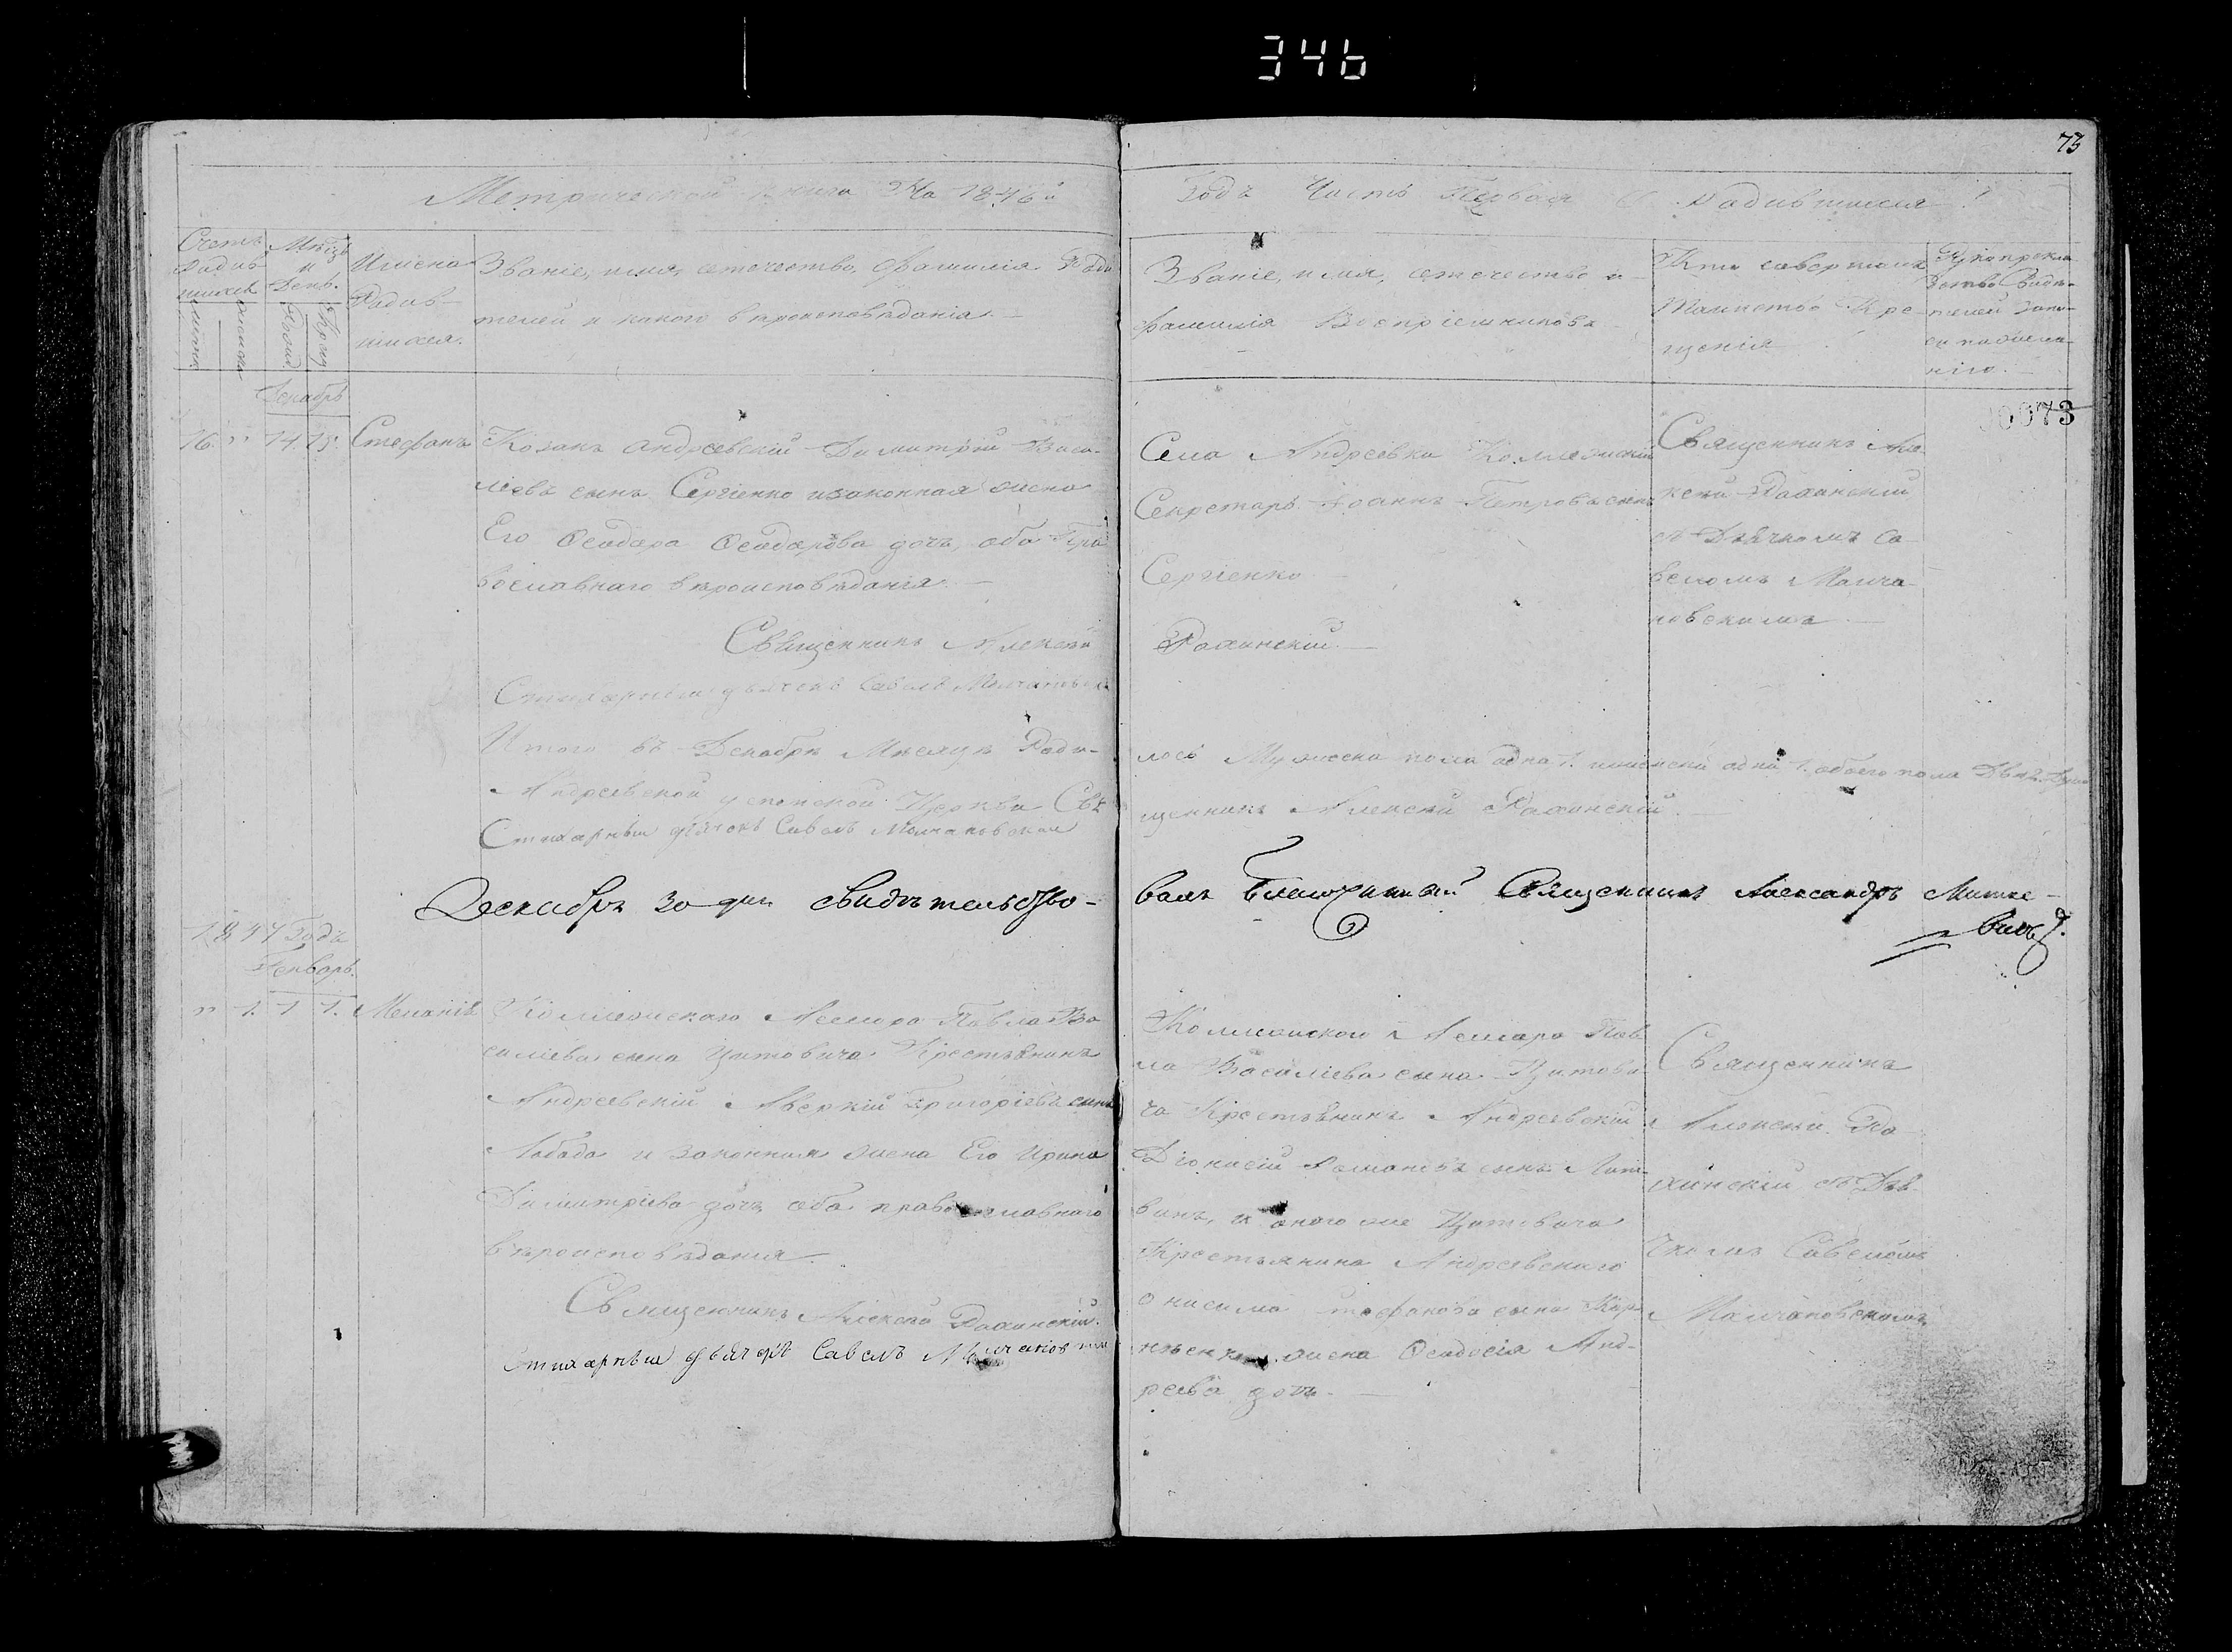 346
73
Метрической книга На 1846й
Годъ Часть Первая О родившихся
Счетъ родившихся
Мѣсяцъ и День.
Имена Родившихся.
Званіе, имя, отечество, фамилія Родителей и какого вѣроисповѣданія.
Званіе, имя, отечество и фамилія Воспріемниковъ
Кто совершалъ таинство Крещенія
00073
Декабрь
16. " 14 15. Стефанъ
Козакъ Андреевскій Димитрій Васи-
ліевъ сынъ Сергіенко и законная жена
Его Ѳеодора Ѳеодорова дочь, оба Пра
вославнаго вѣроисповѣданія.
Священникъ Алексѣй
Стихарный дьячокъ Савелъ Молчановскій
Села Андреевки Коллежскій
Секретарь Іоаннъ Петровъ сынъ
Сергіенко
Рахинскій.
Священникъ Але
ксѣй Рахинскій
съ Дьячкомъ Са
веломъ Молча
новскимъ
Итого въ Декабрѣ Мѣсяцѣ Роди-
лось Мужеска пола одна 1. женска одна 1. обоего пола Двѣ 2. Души
Андреевской успенской Церкви Свя
щенникъ Алексѣй Рахинскій.
Стихарный дьячокъ Савелъ Молчановскій
Декабря 30 дня свидѣтельство-
валъ Благочинный Священникъ Александръ Митке-
вичъ.
1847 Годъ
Генварь.
" 1. 1 1. Меланія
Коллежскаго Ассесора Павла Ва
силіева сына Цитовича Крестьянинъ
Андреевскій Аверкій Григоріевъ сынъ
Лобода и законная жена Его Ирина
Димитріева дочь, оба православнаго
вѣроисповѣданія.
Священникъ Алексѣй Рахинскій.
Стихарный дьячокъ Савелъ Молчановскій
Коллежскаго Ассесора Пав
ла Василіева сына Цитови
ча Крестьянинъ Андреевскій
Діонисій Романовъ сынъ
винъ, и оного же Цитовича
Крестьянина Андреевскаго
Онисима Стефанова сына
жена Ѳеодосія Анд-
реева дочь.
Священникъ
Алексѣй Ра
хинскій съ Дья
чкомъ Савеломъ
Молчановскимъ